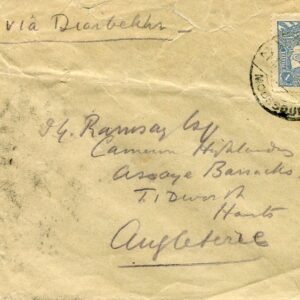 via Diarbekhr
I G. Ramsay Esq
Cameron Highlanders
Assaye Barracks
Tidworth
Hants
Angleterre